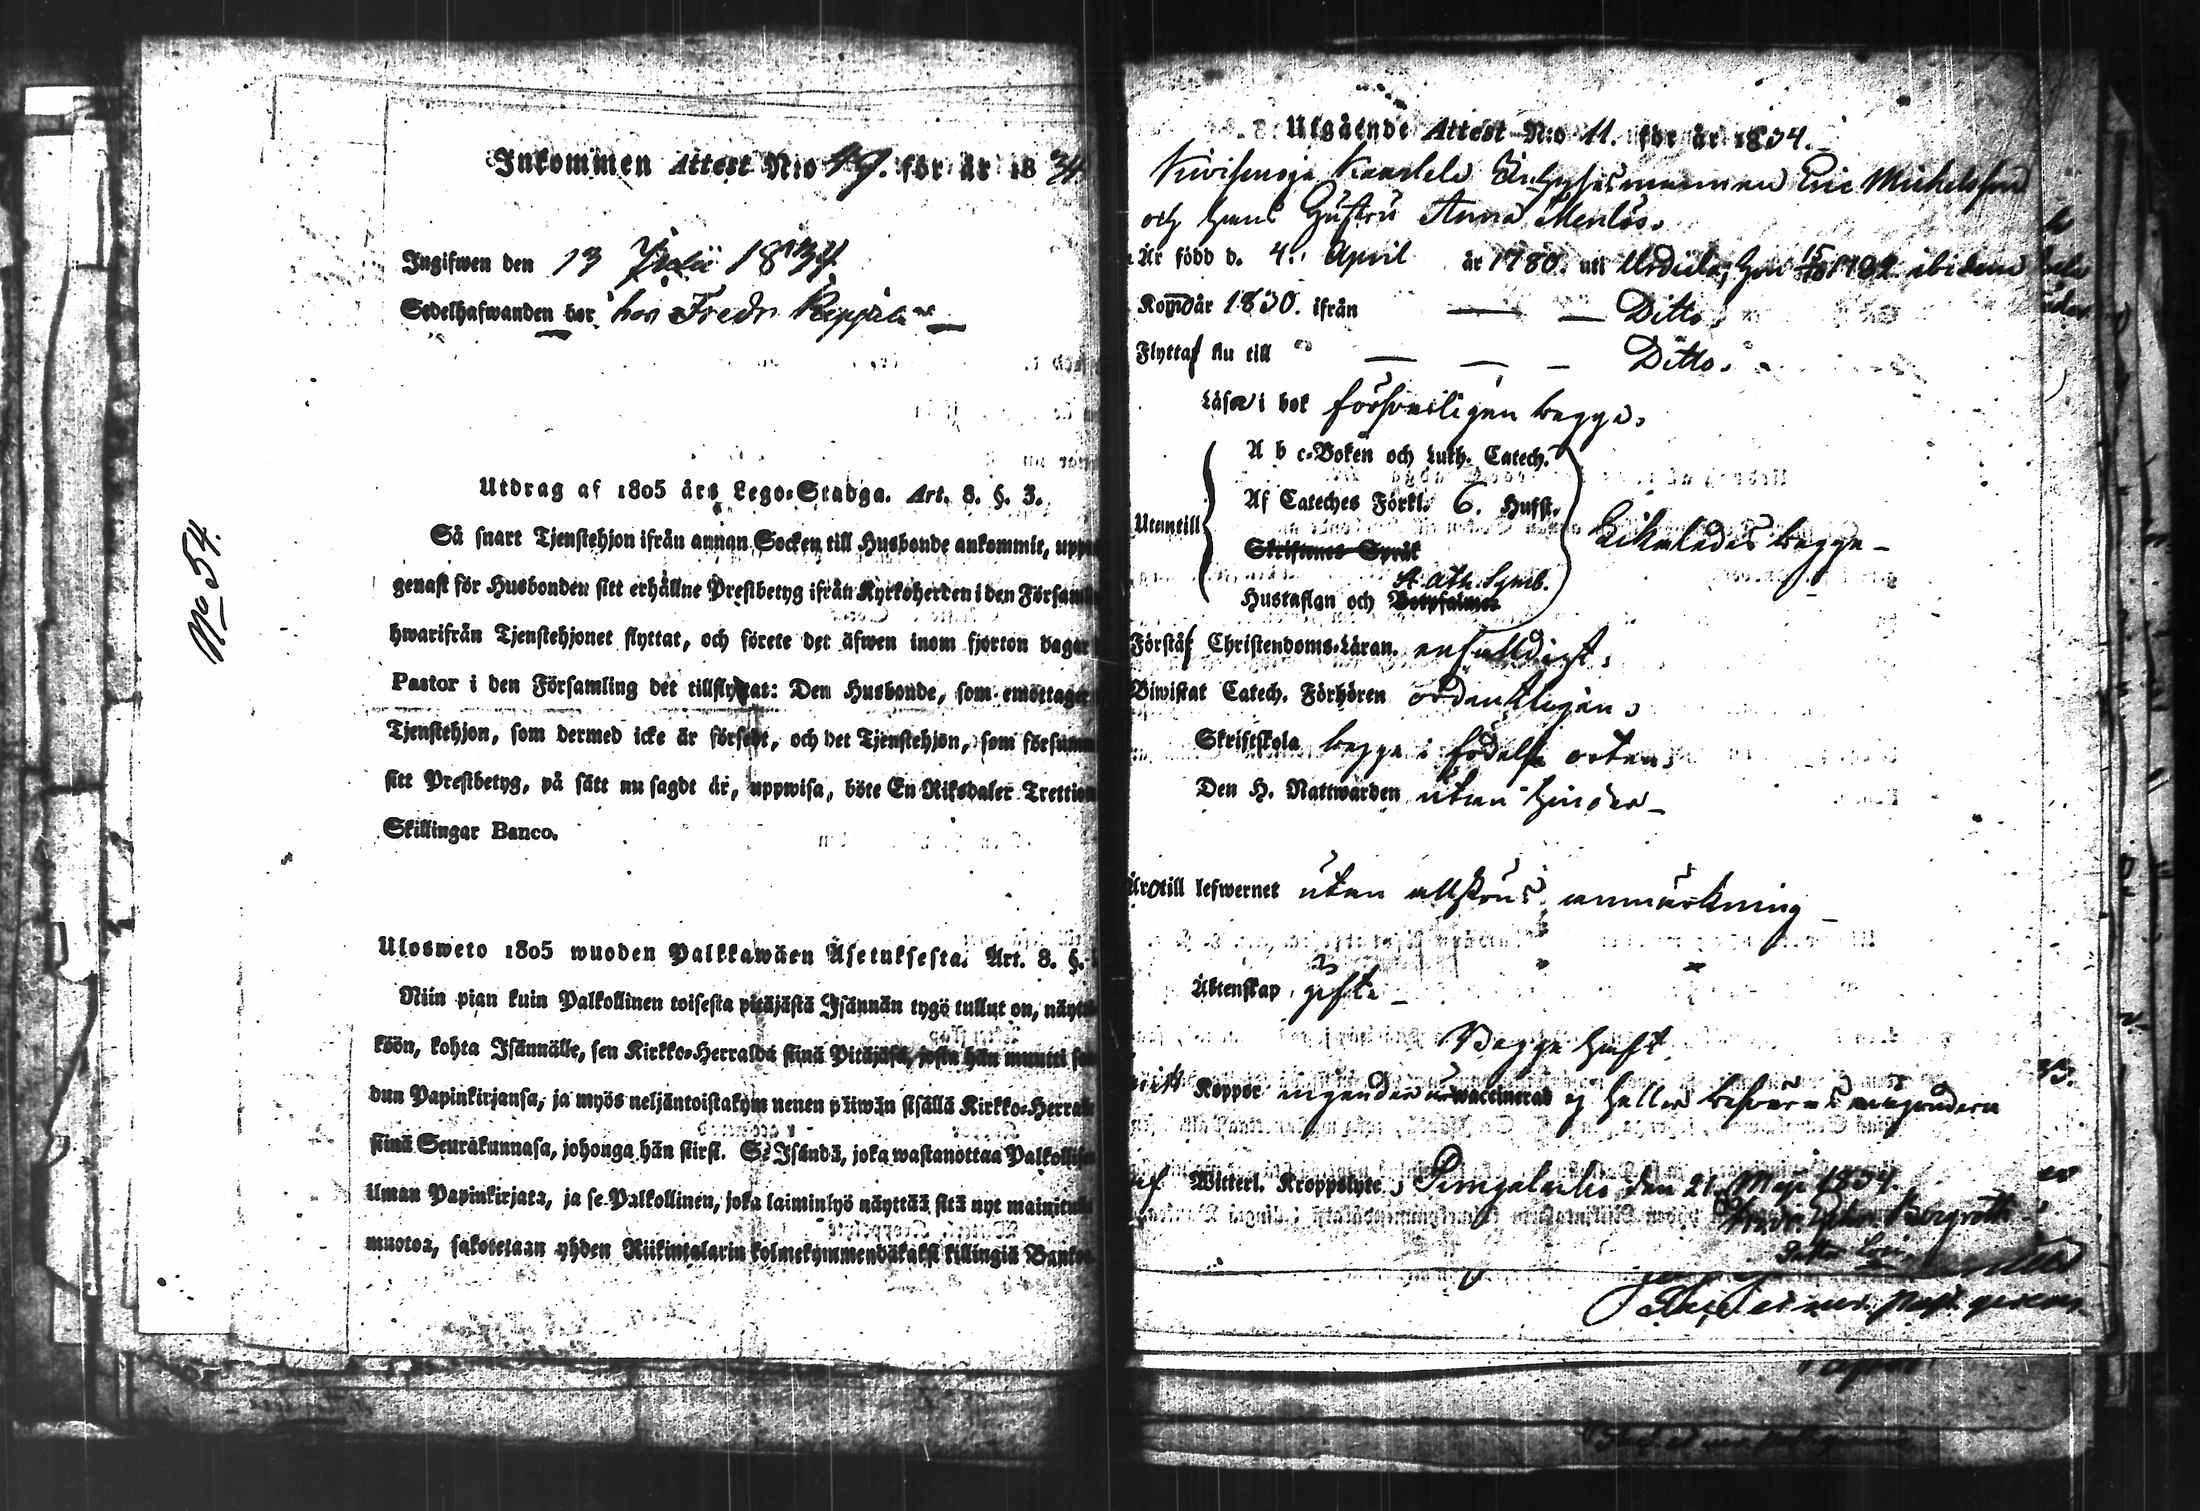 Inkommen Attest N:o 49. för år 1834
Ingifwen den 13 Julii 1834
Sedelhafwanden bor hos Fredr
No 54.
Utdrag af 1805 års Lego-Stadga. Art. 8. §. 3.
Så snart Tjenstehjon ifrån annan Socken till Husbonde ankommit, uppw
genast för Husbonden sitt erhållne Prestbetyg ifrån Kyrkoherden i den Församl
hwarifrån Tjenstehjonet flyttat, och förete det äfwen inom fjorton dagar
Pastor i den Församling det tillflyttat: Den Husbonde, som emottager
Tjenstehjon, som dermed icke är försedt, och det Tjenstehjon, som försumm
sitt Prestbetyg, på sätt nu sagdt är, uppwisa, böte En Riksdaler Trettion
Skillingar Banco.
Ulosweto 1805 wuoden Palkkawäen Asetuksesta. Art. 8. §.
Niin pian kuin Palkollinen toisesta pitäjästä Isännän tygö tullut on, näytt
köön, kohta Isännälle, sen Kirkko-Herralda siinä Pitäjäsä, josta hän muutti sa
dun Papinkirjansa, ja myös neljäntoistakymmenen päiwän sisällä Kirkko-Herrall
siinä Seurakunnasa, johonga hän siirsi. Se Isändä, joka wastanottaa Palkollisen
ilman Papinkirjata, ja se Palkollinen, joka laiminlyö näyttää sitä nyt mainitulla
muotoa, sakotetaan yhden Riikintalarin kolmekymmendäkaksi killingiä Banko
Utgående Attest N:o 11. för år 1834.
Kivisenoja Inhysesmannen Eric Michelsson
och hans Hustru Anna
Är född d. 4. April år 1780. uti Urdiala, hon 1782 ibidem
Kom år 1830. ifrån — — Ditto
Flytta nu till — — — Ditto.
Läsa i bok försvarligen begge.
A b c-Boken och Luth. Catech.
Af Cateches Förkl. 6. Hufst.
Utantill
Skriftenes Språk
Likaledes begge –
A. Ath. Symb.
Hustaflan och Botpsalmer
Förstå Christendoms-Läran. enfaldigt.
Biwistat Catech. Förhören ordentligen.
Skriftskola begge i födelse orten.
Den H. Nattwarden utan hinder –
Äro till lefwernet utan allskons anmärkning –
Äktenskap gifta –
Begge haft
Koppor ingendera waccinerad ej heller
af Witterl. Kroppslyte, den 21. Maji 1834.
Bergroth